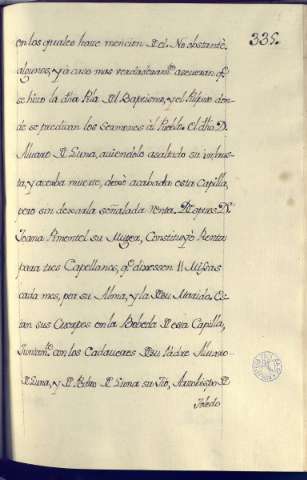 335.
en los quales hace mencion de el. No obstante,
algunos, y à caso mas verdaderamte. aseveran qe.
se hizo la dha Pila del Baptismo, y el Pulpito don-
de se predican los Sermones àl Pueblo. El dho D.
Alvaro de Luna, aviendolo asaltado su injus-
ta, y acerba muerte, dexò acabada esta Capilla,
pero sin dexarla señalada renta. Despues Da.
Joana Pimentel su Muger, Constituyò Renta
para tres Capellanes, qe. dixessen 11 Missas
cada mes, por su Alma, y la de su Marido. Es-
tan sus Cuerpos en la Bobeda de esta Capilla,
Juntamte. con los Cadaveres de su Padre Alvaro
de Luna, y D. Pedro de Luna su Tio, Arzobispo de
Toledo